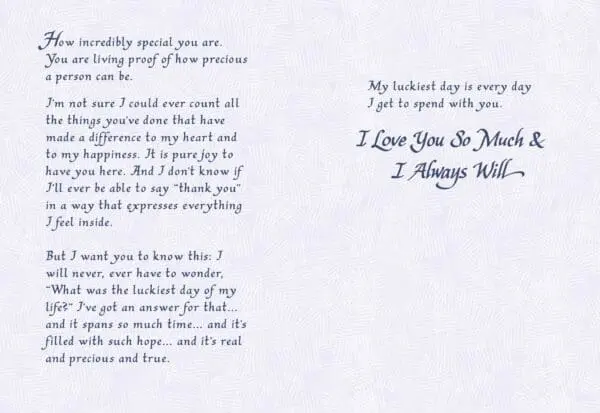 How incredibly special you are.
You are living proof of how precious
a person can be.
I'm not sure I could ever count all
the things you've done that have
made a difference to my heart and
to my happiness. It is pure joy to
have you here. And I don't know if
I'll ever be able to say "thank you"
in a way that expresses everything
I feel inside.
But I want you to know this: I
will never, ever have to wonder,
"What was the luckiest day of my
life?" I've got an answer for that...
and it spans so much time... and it's
filled with such hope... and it's real
and precious and true.
My luckiest day is every day
I get to spend with you.
I Love You So Much &
I Always Will